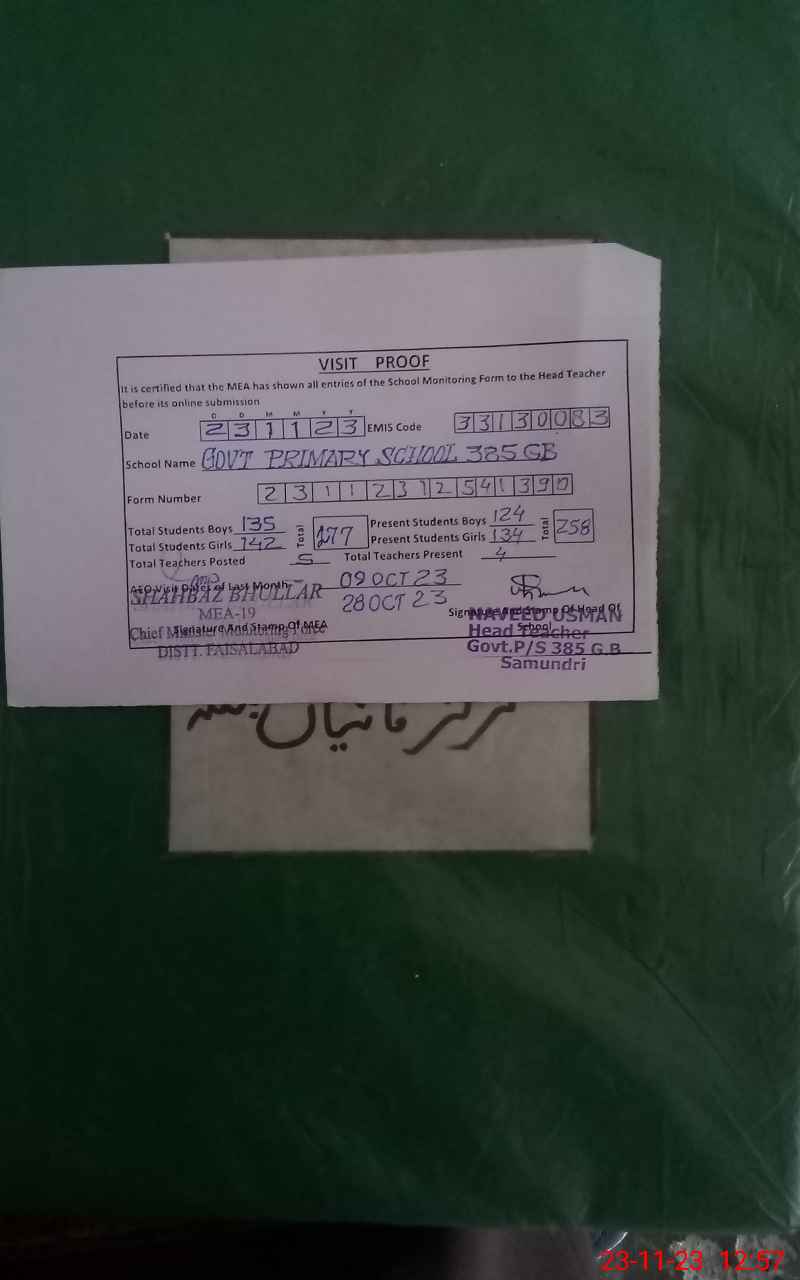 VISIT PROOF
It is certified that the MEA has shown all entries of the School Monitoring Form to the Head Teacher
before its online submission
D D M M Y Y
Date 231123 EMIS Code 33130083
School Name GOVT PRIMARY SCHOOL 385 GB
Form Number 23112312541390
Total Students Boys 135 Total 277 Present Students Boys 124 Total 258
Total Students Girls 142 Present Students Girls 134
Total Teachers Posted 5 Total Teachers Present 4
AEO Visit Dates of Last Month 09 OCT 23
28 OCT 23
SHAHBAZ BHULLAR
MEA-19
Signature And Stamp Of MEA
Chief Minister Monitoring Force
DISTT. FAISALABAD
Signature And Stamp Of Head Of
School
NAVEED USMAN
Head Teacher
Govt.P/S 385 G.B
Samundri
مرکز
23-11-23 12:57